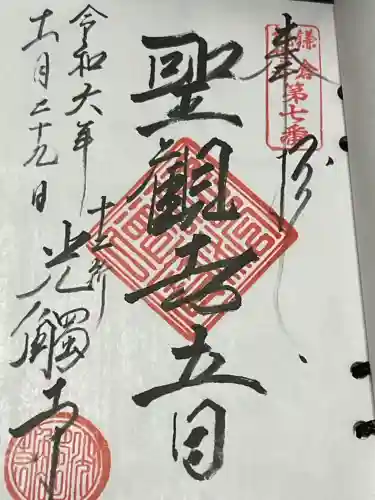 奉拝
鎌倉
第七番
聖觀世音
十二所
光觸寺
令和六年
十一月二十九日